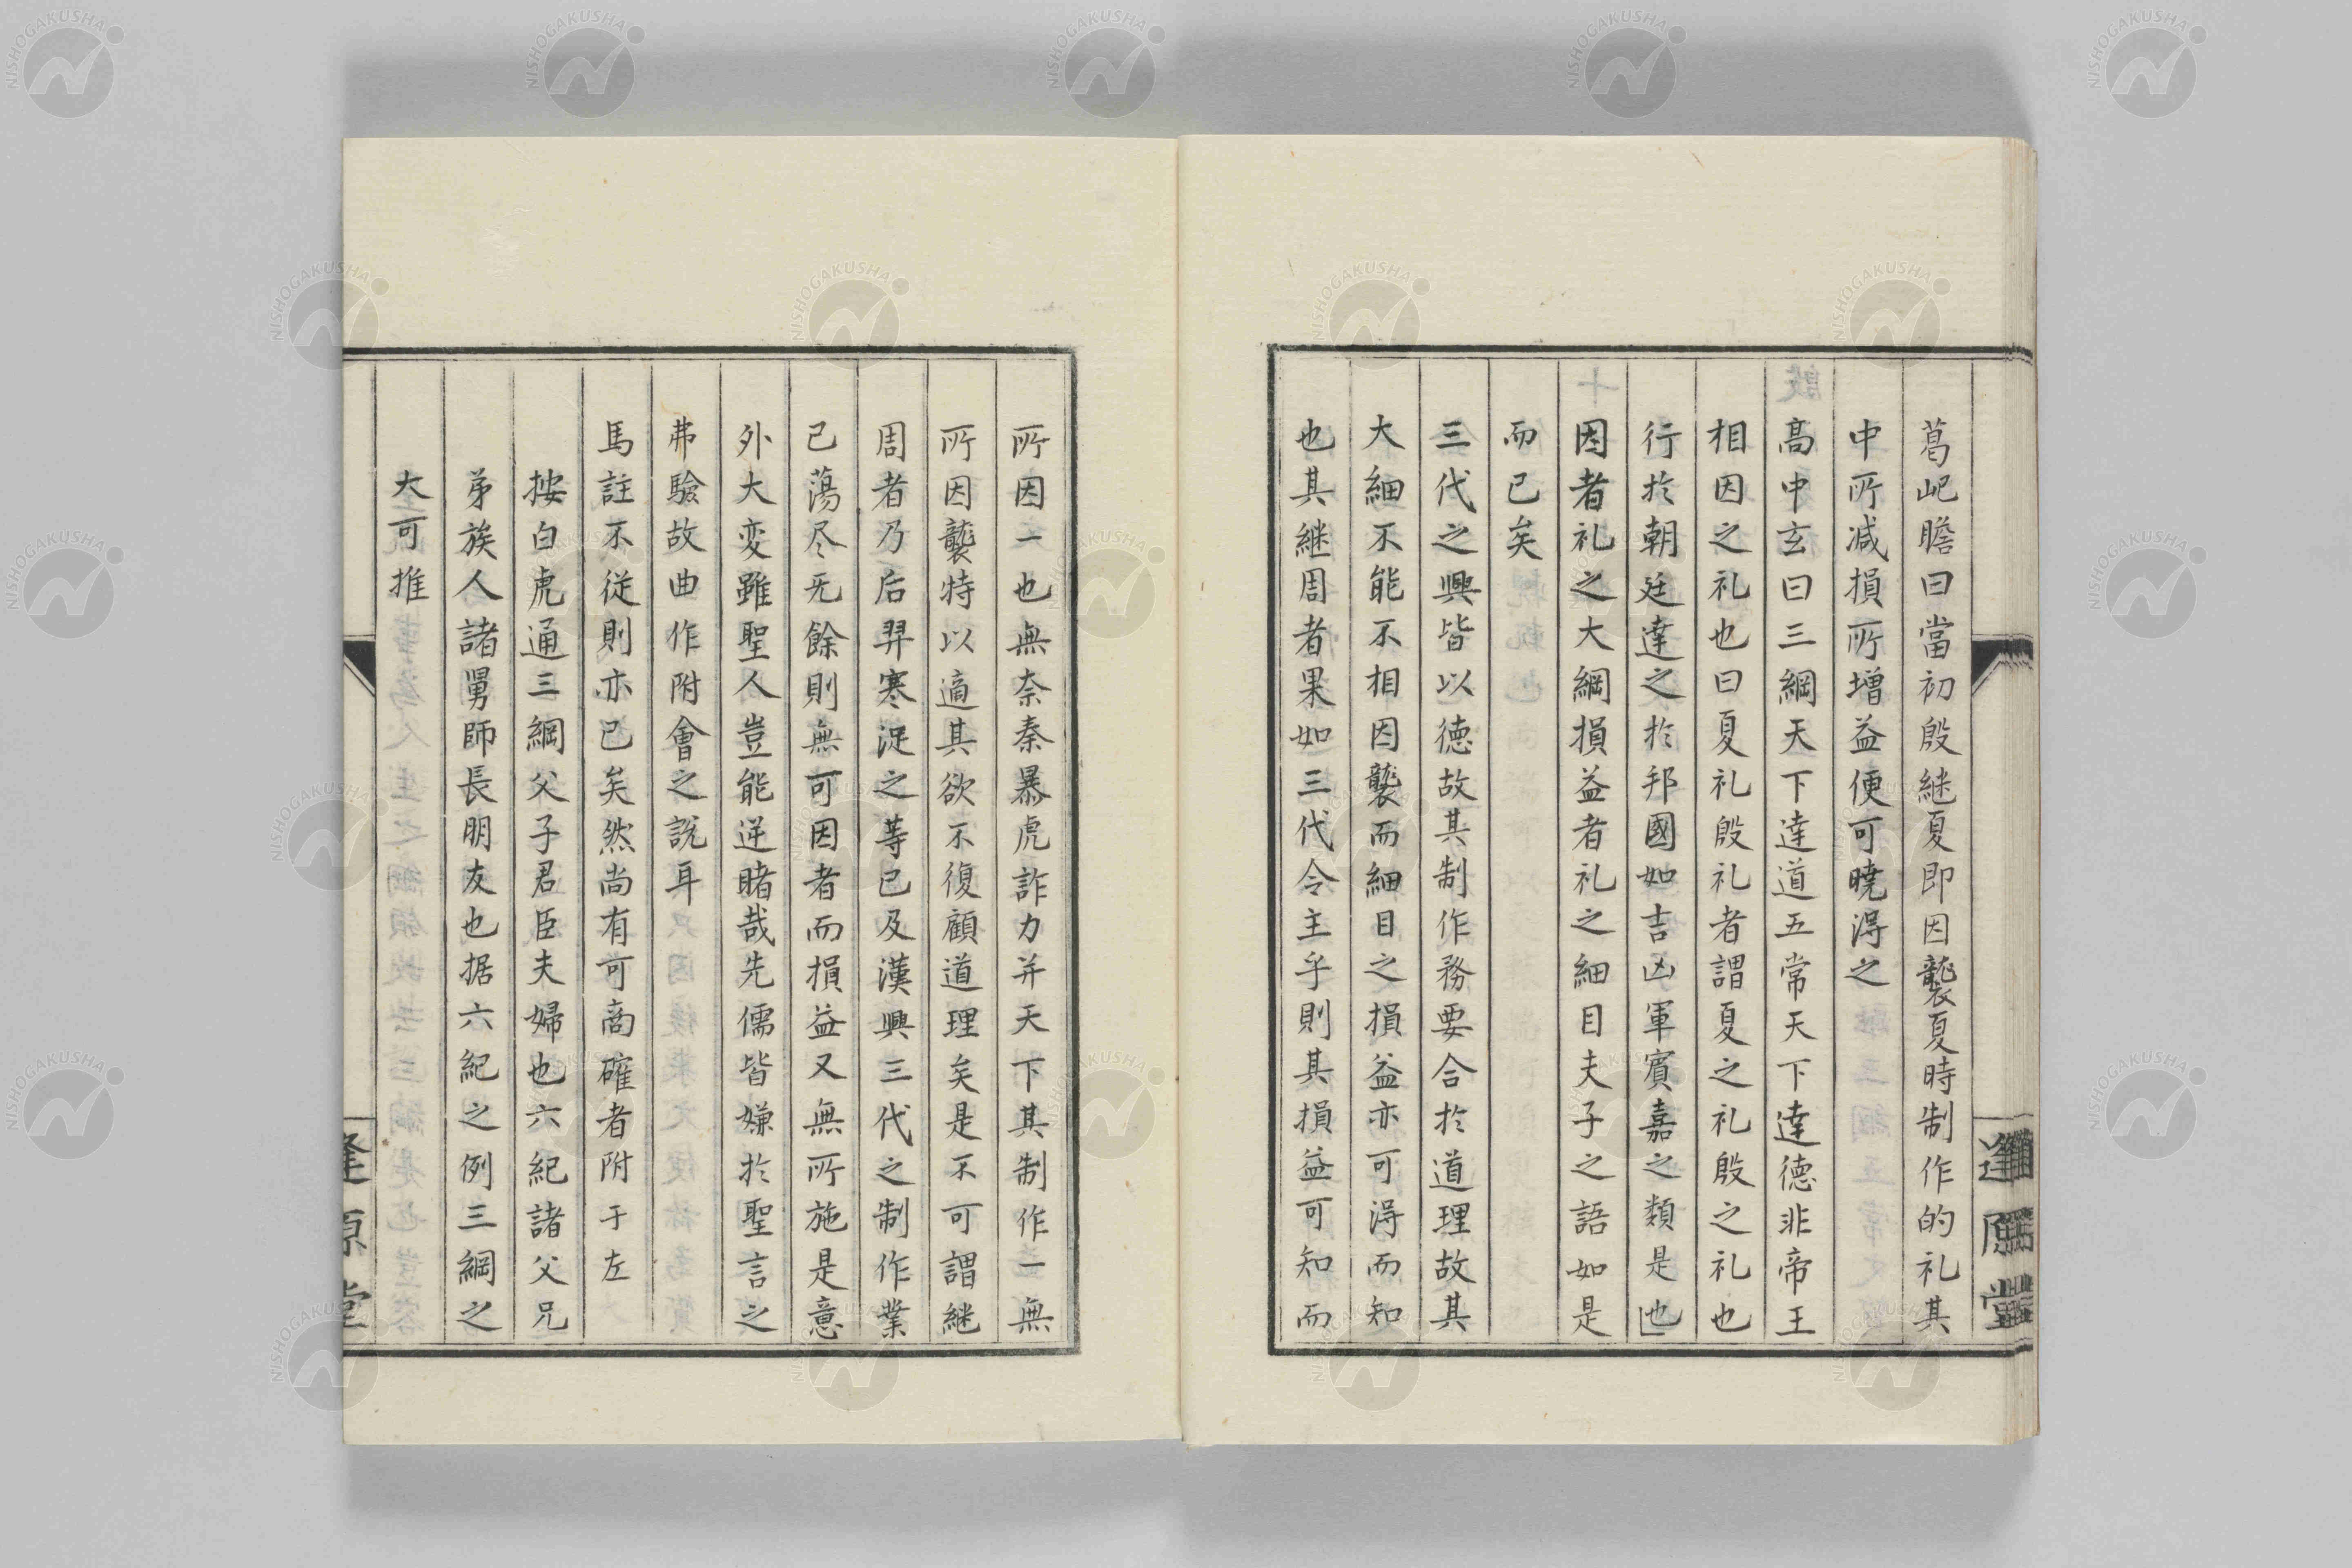 葛屺瞻曰當初殷継夏即因襲夏時制作的礼其
中所减損所増益便可曉得之
高中玄曰三綱天下達道五常天下達德非帝王
相因之礼也曰夏礼殷礼者謂夏之礼殷之礼也
行於朝廷達之於邦國如吉凶軍賓嘉之類是也
因者礼之大綱損益者礼之細目夫子之語如是
而已矣
三代之興皆以徳故其制作務要合於道理故其
大細不能不相因襲而細目之損益亦可淂而知
也其継周者果如三代令主乎則其損益可知而
所因一也無奈秦暴虎詐力并天下其制作一無
所因襲特以適其欲不復顧道理矣是不可謂継
周者乃后羿寒浞之等已及漢興三代之制作業
已蕩尽无餘則無可因者而損益又無所施是意
外大変雖聖人豈能逆睹哉先儒皆嫌於聖言之
弗驗故曲作附會之說耳
馬註不従則亦已矣然尚有可商確者附于左
按白虎通三綱父子君臣夫婦也六紀諸父兄
弟族人諸舅師長朋友也据六紀之例三綱之
大可推
逢原堂
NISHOGAKUSHA